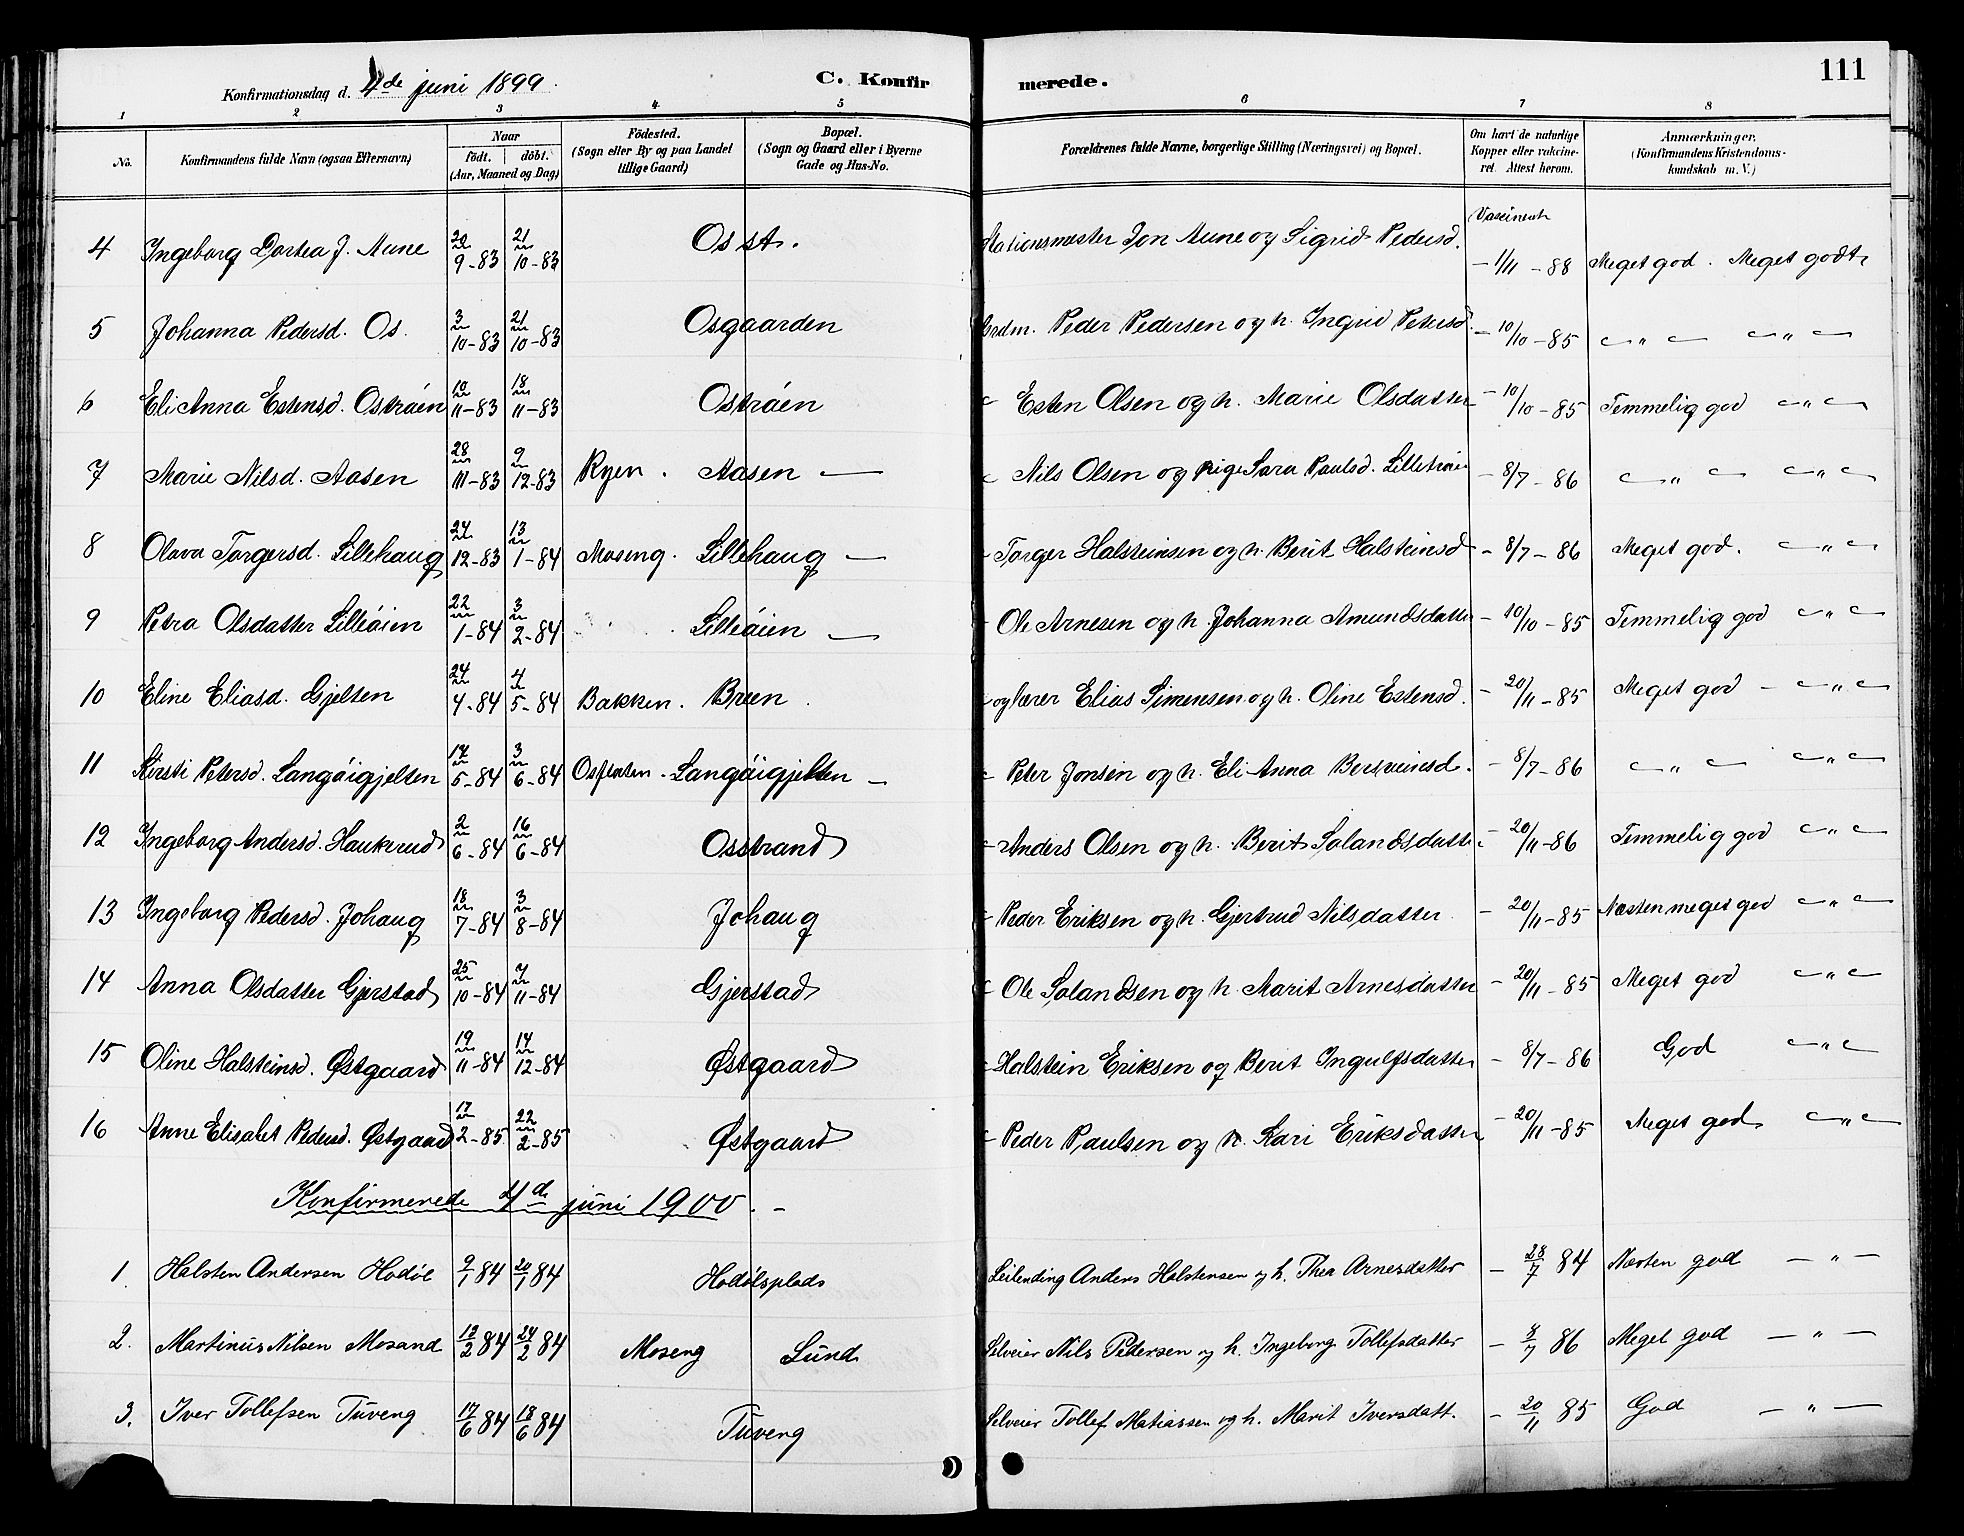 Konfirmationsdag d. 4de juni 1899. C. Konfirmerede. 111
1 2 3 4 5 6 7 8
No. Konfirmandens fulde Navn (ogsaa Efternavn) Naar födt. döbt. (Aar, Maaned og Dag) Födested. (Sogn eller By og paa Landet tillige Gaard) Bopæl. (Sogn og Gaard eller i Byerne Gade og Hus-No. Forældrenes fulde Navne, borgerlige Stilling (Næringsvei) og Bopæl. Om havt de naturlige Kopper eller vakcineret. Attest herom. Anmærkninger. (Konfirmandens Kristendomskundskab m. V.)
Vaccineret
4 Ingeborg Dortea J. Aune 20/9-83 21/10-83 Os st. Stationsmester Jon Aune og Sigrid Pedersd. - 1/11-88 Meget god. Meget godt
5 Johanna Pedersd. Os. 3/10-83 21/10-83 Osgaarden Grdm. Peder Pedersen og h. Ingrid Petersd. - 10/10-85 — " — — " —
6 Eli Anna Estensd. Ostrøen 10/11-83 18/11-83 Ostrøen Esten Olsen og h. Marie Olsdatter - 10/10-85 Temmelig god — " —
7 Marie Nilsd. Aasen 28/11-83 9/12-83 Ryen. Aasen — Nils Olsen og pige Sara Paulsd. - 8/7-86 — " — — " —
8 Olava Torgersd. Lillehaug 24/12-83 13/1-84 Moseng. Lillehaug — Torger Halsteinsen og h. Berit Halsteinsd - 8/7-86 Meget god. — " —
9 Petra Olsdatter Lilleøien 22/1-84 3/2-84 Lilleøien — Ole Arnesen og h. Johanna Amundsdatter - 10/10-85 Temmelig god — " —
10 Eline Eliasd. Gjelten 24/4-84 4/5-84 Bakken. Breen. og lærer Elias Simensen og h. Oline Estensd. - 20/11-85 Meget god - — " —
11 Kirsti Petersd. Langøigjelten 14/5-84 3/6-84 Langøigjelten — Peter Jonsen og h. Eli Anna Bersveinsd. - 8/7-86 — " — — " —
12 Ingeborg Andersd. Haukrud 2/6-84 16/6-84 Osstrand Anders Olsen og h. Berit Salandsdatter - 20/11-86 Temmelig god — " —
13 Ingeborg Pedersd. Johaug 18/7-84 3/8-84 Johaug Peder Eriksen og h. Gjertrud Nilsdatter - 20/11-85 Næsten meget god — " —
14 Anna Olsdatter Gjerstad 25/10-84 7/11-84 Gjerstad Ole Salandsen og h. Marit Arnesdatter - 20/11-85 Meget god — " —
15 Oline Halsteinsd. Østgaard 19/11-84 14/12-84 Østgaard Halstein Eriksen og Berit Ingulfsdatter - 8/7-86 God — " —
16 Anne Elisabet Pedersd. Østgaard 17/2-85 22/2-85 Østgaard Peder Paulsen og h. Kari Eriksdatter - 20/11-85 Meget god — " —
Konfirmerede 4de juni 1900. -
1. Halsten Andersen Hodøl 9/1 84 20/1 84 Hodølsplads Leilending Anders Halstensen og h. Thea Arnesdatter - 28/7 84 Næsten god — " —
2. Martinus Nilsen Mosand 12/2 84 24/2 84 Moseng Lund Selveier Nils Pedersen og h. Ingeborg Tollefsdatter - 8/7 86 Meget god — " —
3. Iver Tollefsen Tuveng 17/6 84 18/6 84 Tuveng Selveier Tollef Matiassen og h. Marit Iversdatt. - 20/11 85 God — " —